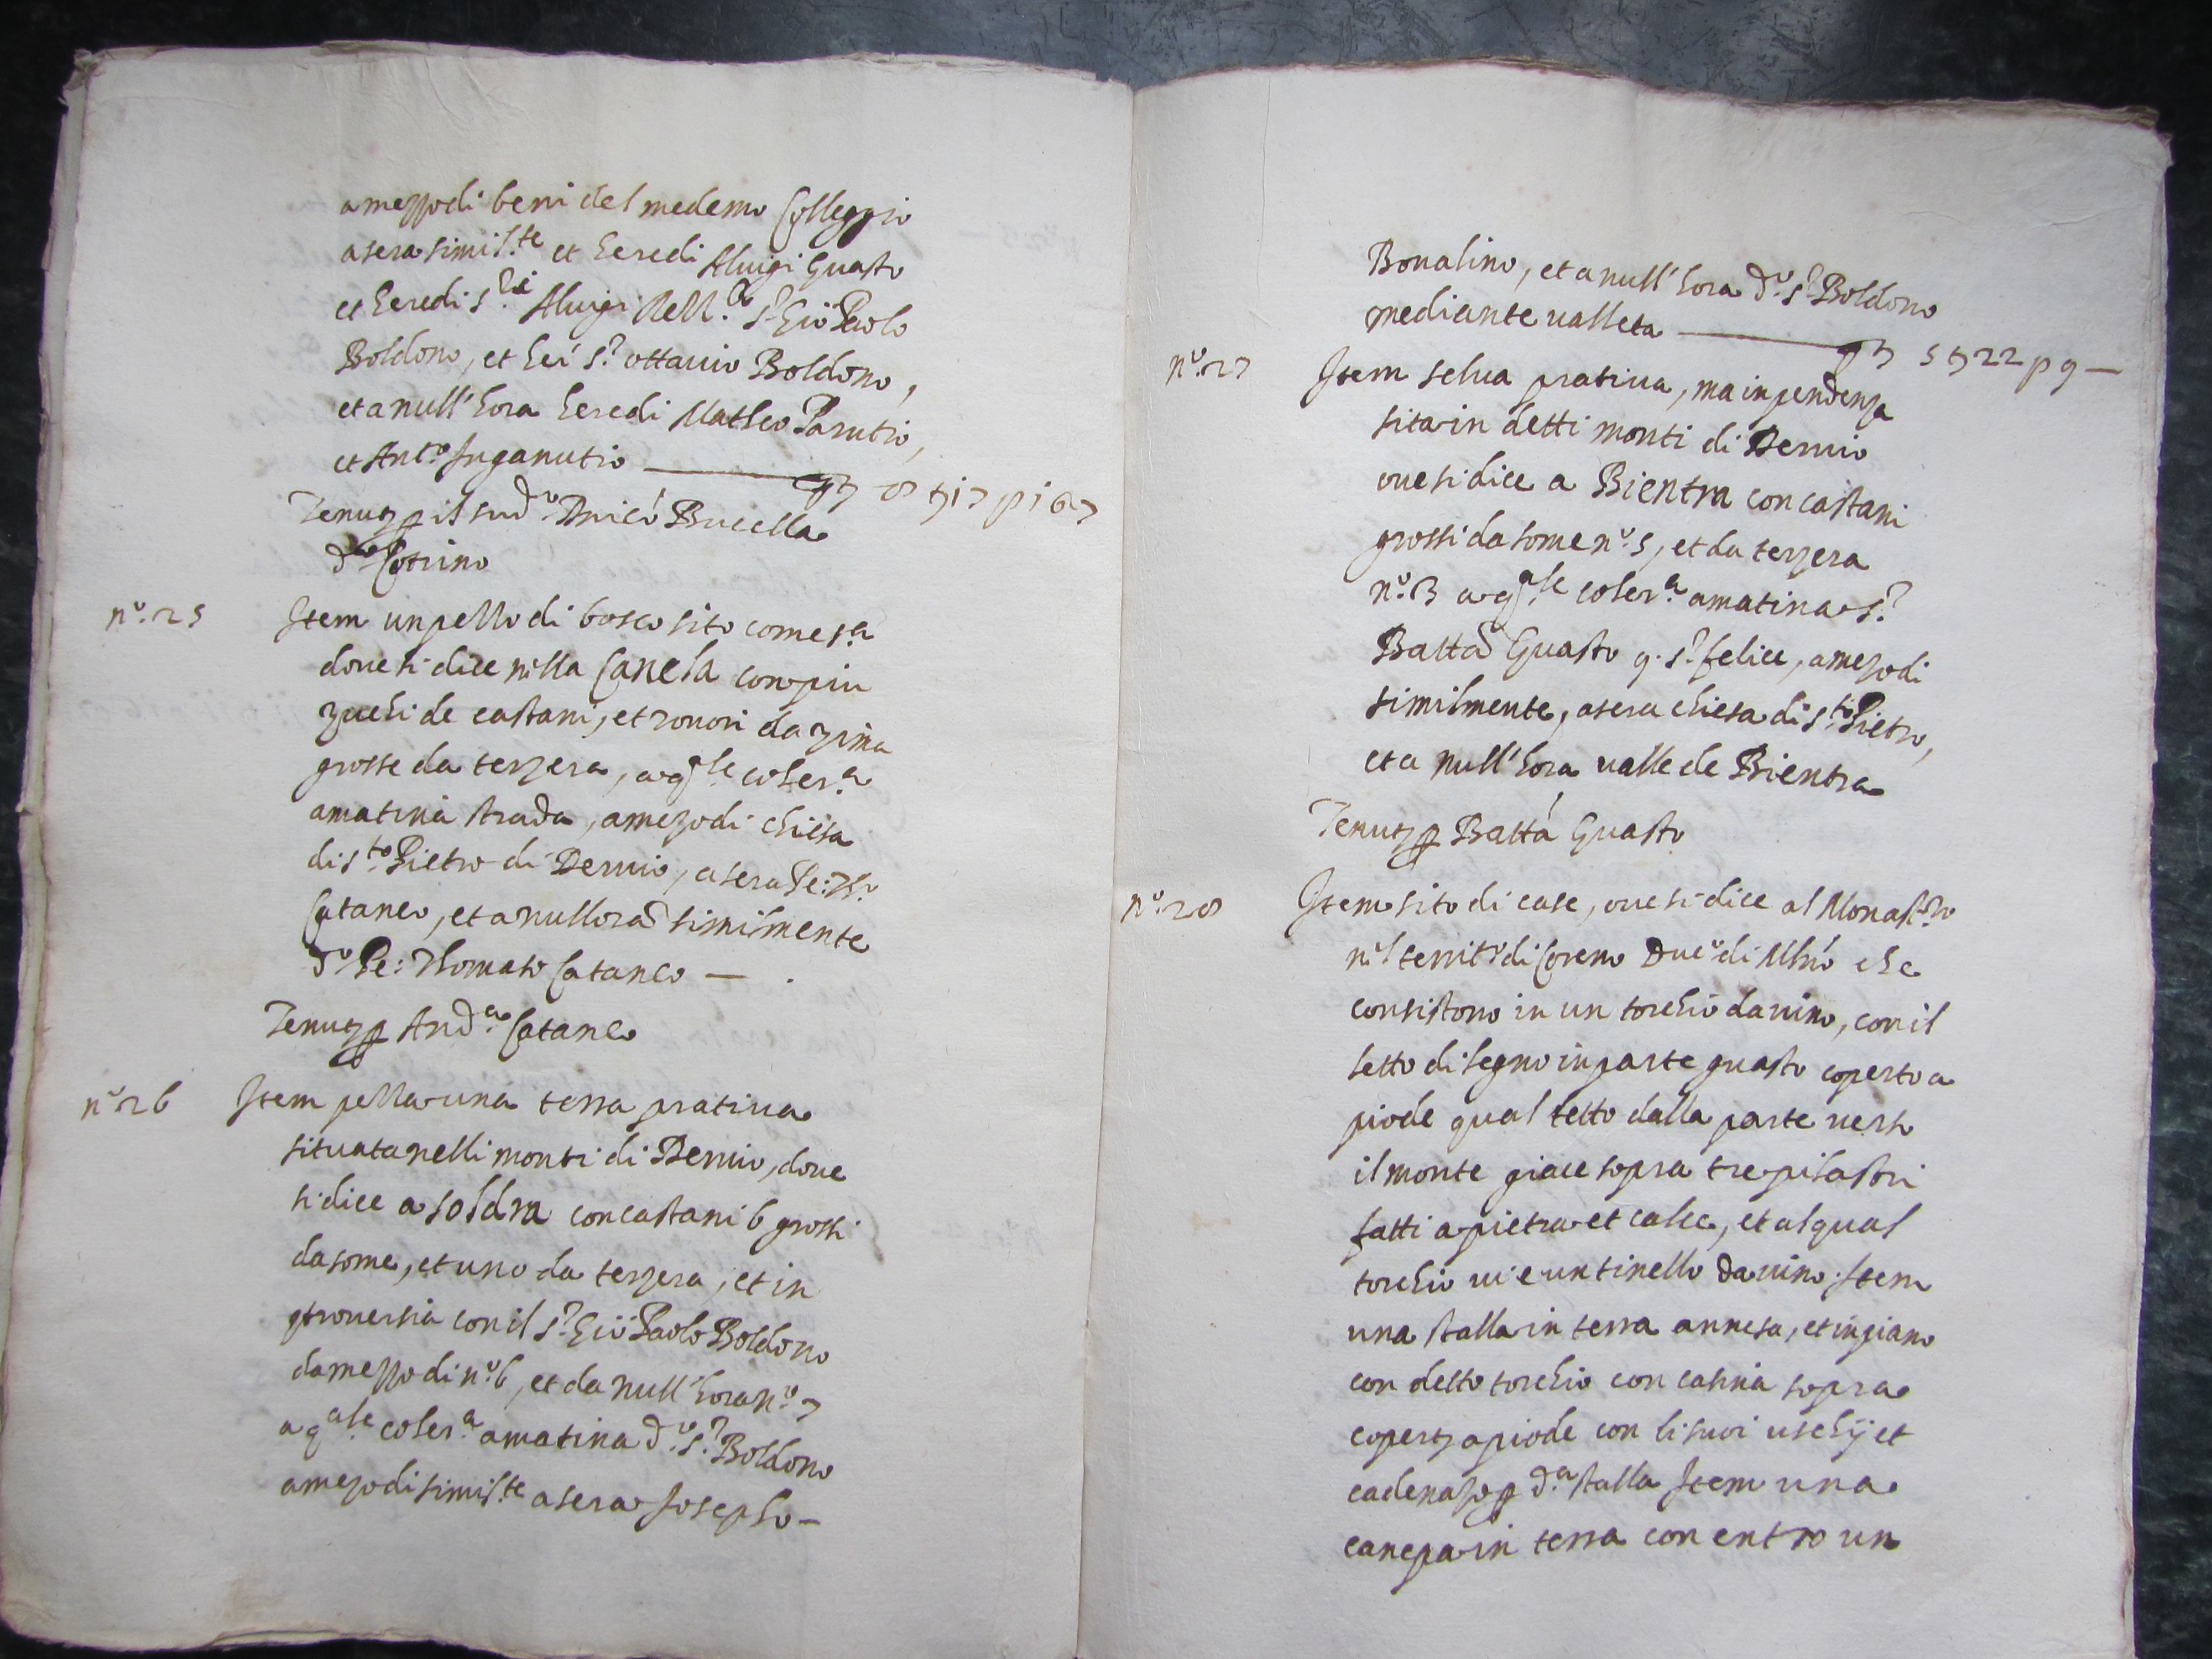 a mezzodi beni del medemo Colleggio
a sera simil.te et heredi Aluigi Guasto
et heredi s.ri Aluigi s.r Gio Paolo
Boldono, et hei s.r ottavio Boldono,
et a null'hora heredi Mattheo Parutio,
et Ant.o Inganutio
Tenut p il sud.o Bucella
d.o Cotrino
n.o 25 Item un pezzo di bosco sito come s.a
doue si dice nilla Canela con piu
zuchi de castani, et rouori da zima
grosse da terzera, a q.le coher.a
a matina strada, a mezodi chiesa
di s.to Pietro di Deruio, a sera Pe: Th.o
Cataneo, et a nullora similmente
d.o Pe: Thomaso Cataneo — .
Tenut p And.a Cataneo
n.o 26 Item pezza una terra pratiua
situata nelli monti di Deruio, doue
si dice a soldra con castani 6 grossi
da some, et uno da terzera, et in
controuersia con il s.r Gio Paolo Boldono
da mezzodi n.o 6, et da null'hora n.o 7
a q.ale coher.a a matina d.o s.r Boldono
a mezodi simil.te a sera Josepho —
Bonalino, et a null'hora d.o s.r Boldono
mediante ualleta — 5 t 22 p 9 —
n.o 27 Item selua pratiua, ma in pendenza
sita in detti monti di Deruio
oue si dice a Bientra con castani
grossi da some n.o 5, et da terzera
n.o 3 a q.ale coher.a a matina s.r
Batta Guasto q. s.r felice, a mezodi
similmente, a sera chiesa di s.to Pietro,
et a null'hora ualle de Bientra
Tenut p Batta Guasto
n.o 28 Item sito di case, oue si dice al Monast.ro
nil territ.o di Coreno Duc.o di Mlno che
consistono in un torchio da uino, con il
tetto di legno in parte guasto coperto a
piode qual tetto dalla parte uerso
il monte giace sopra tre pilastri
fatti a pietra et calce, et al qual
torchio ui e un tinello da uino. Item
una stalla in terra annesa, et in piano
con detto torchio con casina sopra
copert a piode con li suoi uschij et
cadenazo p d.a stalla Item una
canepa in terra con entro un